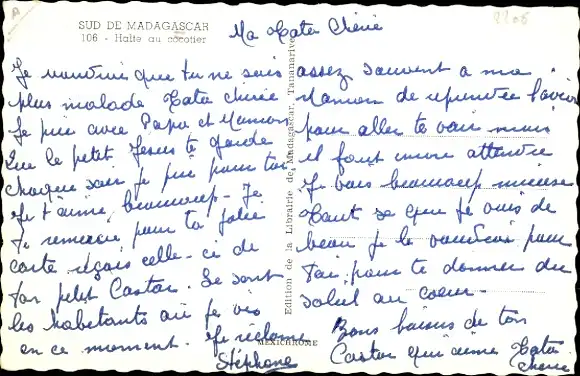 SUD DE MADAGASCAR
106 - Halte au cocotier
2206
Ma Tata Chérie
Je voudrais que tu ne sois
plus malade Tata chérie
Je prie avec Papa et Maman
Que le petit Jésus te garde
chaque soir je prie pour toi
Je t'aime beaucoup. Je
te remercie pour ta jolie
carte reçois celle-ci de
ton petit Castor. Ce sont
les habitants où je vis
en ce moment. Je réclame
Stéphane
assez souvent a ma
Maman de reprendre l'avion
pour aller te voir mais
il faut encore attendre
Je vais beaucoup mieux
Tout ce que je vois de
beau je le voudrais pour
toi pour te donner du
soleil au coeur.
Bons baisers de ton
Castor qui aime Tata
chérie
Edition de la Librairie de Madagascar, Tananarive
MEXICHROME